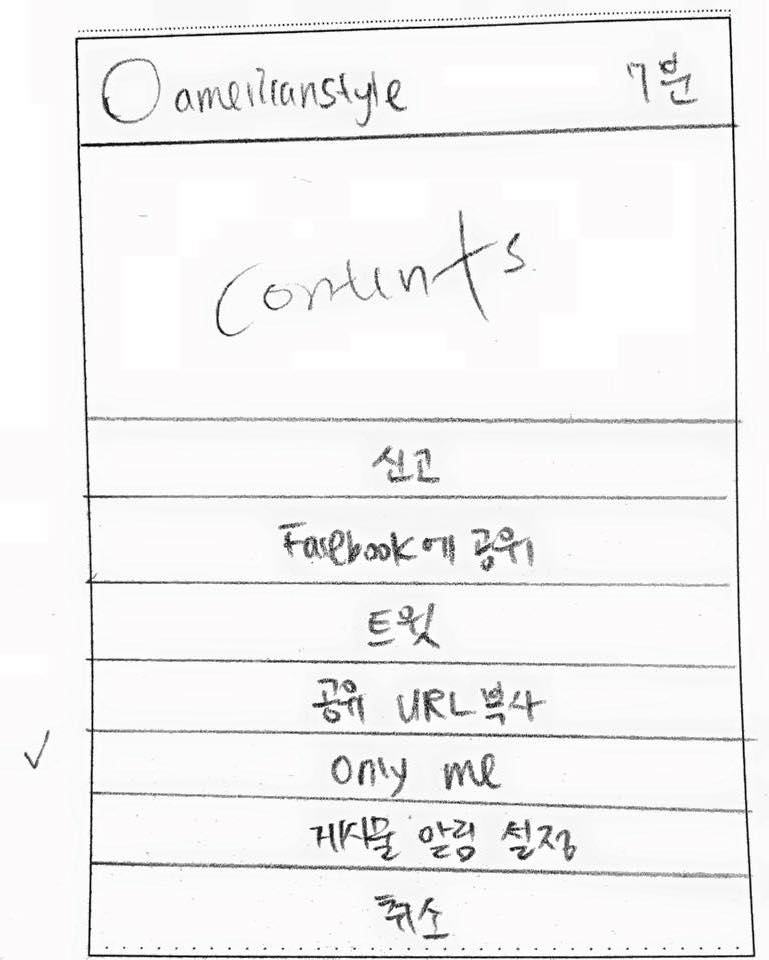 americanstyle 7분
Contents
신고
Facebook에 공유
트윗
공유 URL 복사
only me
게시물 알림 설정
취소